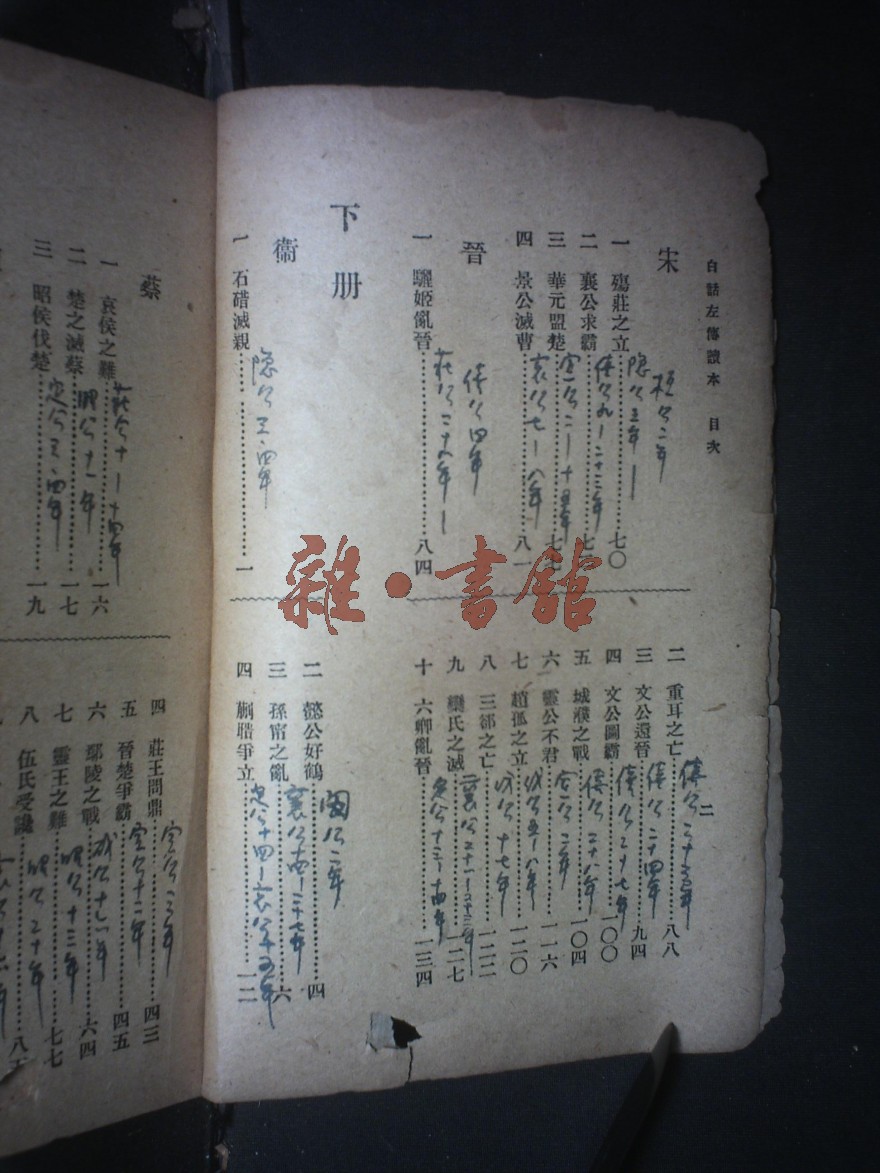 白話左傳讀本　目次
宋
一　殤莊之立 七〇
隐公三年—
桓公二年
二　襄公求霸
僖公九—二十三年
三　華元盟楚
宣公二—十五年
四　景公滅曹 八一
哀公七—八年
晉
一　驪姬亂晉 八四
莊公二十八年—
僖公四年
二　重耳之亡 八八
僖公二十三年
二
三　文公還晉 九四
僖公二十四年
四　文公圖霸 一〇〇
僖公二十七年
五　城濮之戰 一〇四
僖公二十八年
六　靈公不君 一一六
宣公二年
七　趙孤之立 一二〇
成公五—八年
八　三郤之亡 一二二
成公十七年
九　欒氏之滅 一二七
襄公二十一—二十三年
十　六卿亂晉 一三四
定公十三—十四年
下册
衞
一　石碏滅親 一
隐公三·四年
二　懿公好鶴 四
閔公二年
三　孫甯之亂 六
襄公十四—二十七年
四　蒯聵爭立 一二
定公十四—哀公十五年
蔡
一　哀侯之難 一六
莊公十—十四年
二　楚之滅蔡 一七
昭公十一年
三　昭侯伐楚 一九
定公三·四年
四　莊王問鼎 四三
宣公三年
五　晉楚爭霸 四五
宣公十二年
六　鄢陵之戰 六四
成公十六年
七　靈王之難 七七
昭公十三年
八　伍氏受讒
昭公二十年
雜·書舘